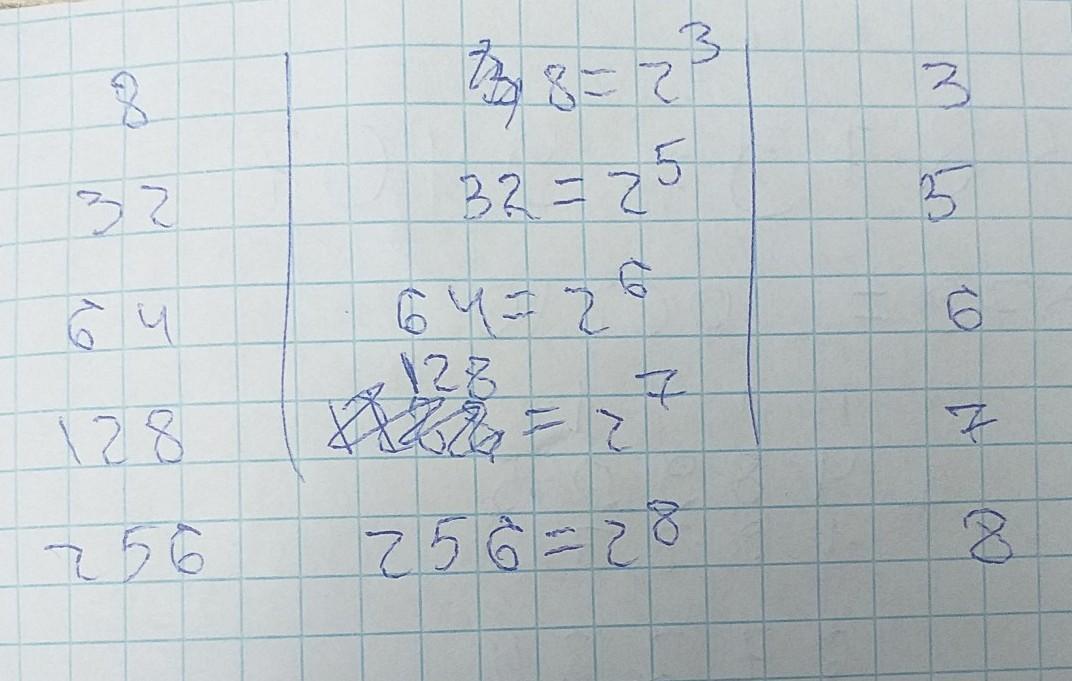 8 8=2³ 3
32 32=2⁵ 5
64 64=2⁶ 6
128 128=2⁷ 7
256 256=2⁸ 8